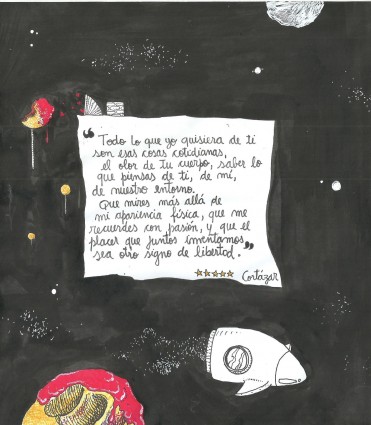 “Todo lo que yo quisiera de ti
son esas cosas cotidianas,
el olor de tu cuerpo, saber lo
que piensas de ti, de mí,
de nuestro entorno.
Que mires más allá de
mi apariencia física, que me
recuerdes con pasión, y que el
placer que juntos inventamos,
sea otro signo de libertad.”
Cortázar